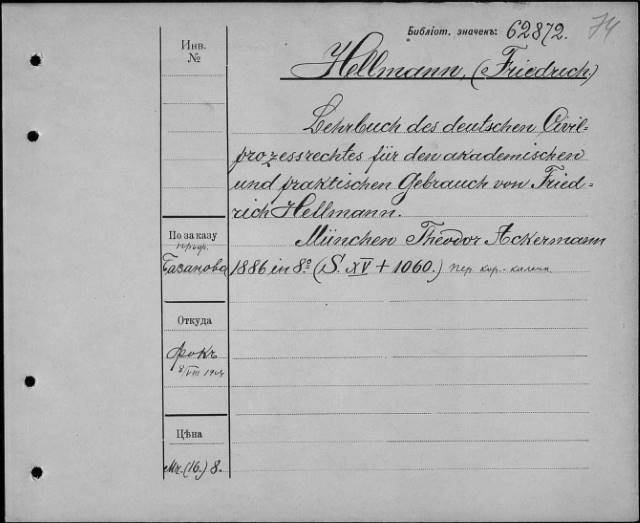 Библіот. значекъ: 62872. 74
Инв.
№
Hellmann, (Friedrich.)
Lehrbuch des deutschen Civil=
prozessrechtes für den akademischen
und praktischen Gebrauch von Fried=
rich Hellmann.
München Theodor Ackermann
По заказу
проф.
Базанова
1886 in 8º. (S. XV + 1060.) пер. кор. - калень
Откуда
Фокъ
VIII
Цѣна
Мк. (16.) 8.